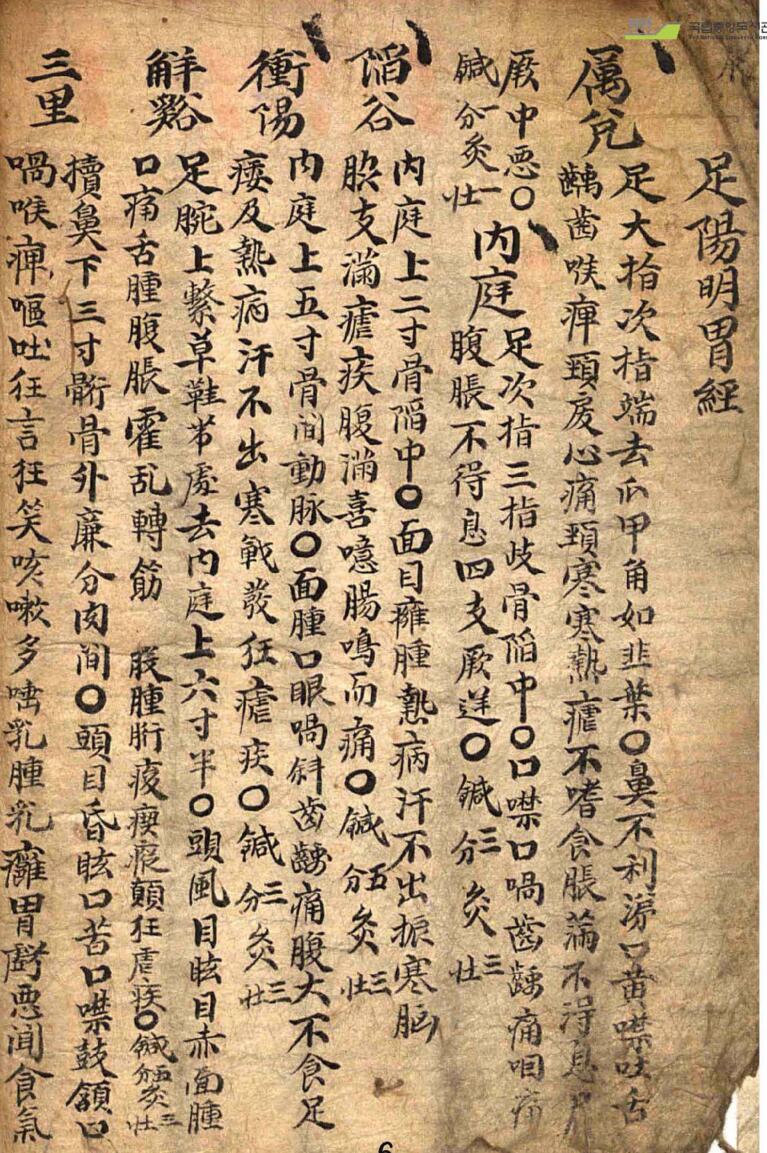 足陽明胃經
厲兌 足大指次指端去爪甲角如韭葉〇鼻不利涕口黃噤吐舌
齲齒喉痺頸 心痛頸寒寒熱瘧不嗜食脹滿不得息足
厥中惡〇鍼一分灸一壯 內庭 足次指三指歧骨陷中〇口噤口喎齒齲痛咽痛
腹脹不得息四支厥逆〇鍼三分灸三壯
陷谷 內庭上二寸骨陷中〇面目癰腫熱病汗不出振寒脳
胲支滿瘧疾腹滿喜噫腸鳴而痛〇鍼五分灸三壯
衝陽 內庭上五寸骨间動脉〇面腫口眼喎斜齒齲痛腹大不食足
痿及熱病汗不出寒戰發狂瘧疾〇鍼三分灸三壯
觧谿 足腕上繫草鞋芇處去內庭上六寸半〇頭風目眩目赤面腫
口痛舌腫腹脹霍乱轉筋 股腫胻痠瘈瘲顛狂瘧疾〇鍼五分灸三壯
三里 犢鼻下三寸䯒骨外廉分肉间〇頭目昏眩口苦口噤鼓頷口
喎喉痺嘔吐狂言狂笑咳嗽多唾乳腫乳癰胃 惡闻食氣
6
국립중앙도서관